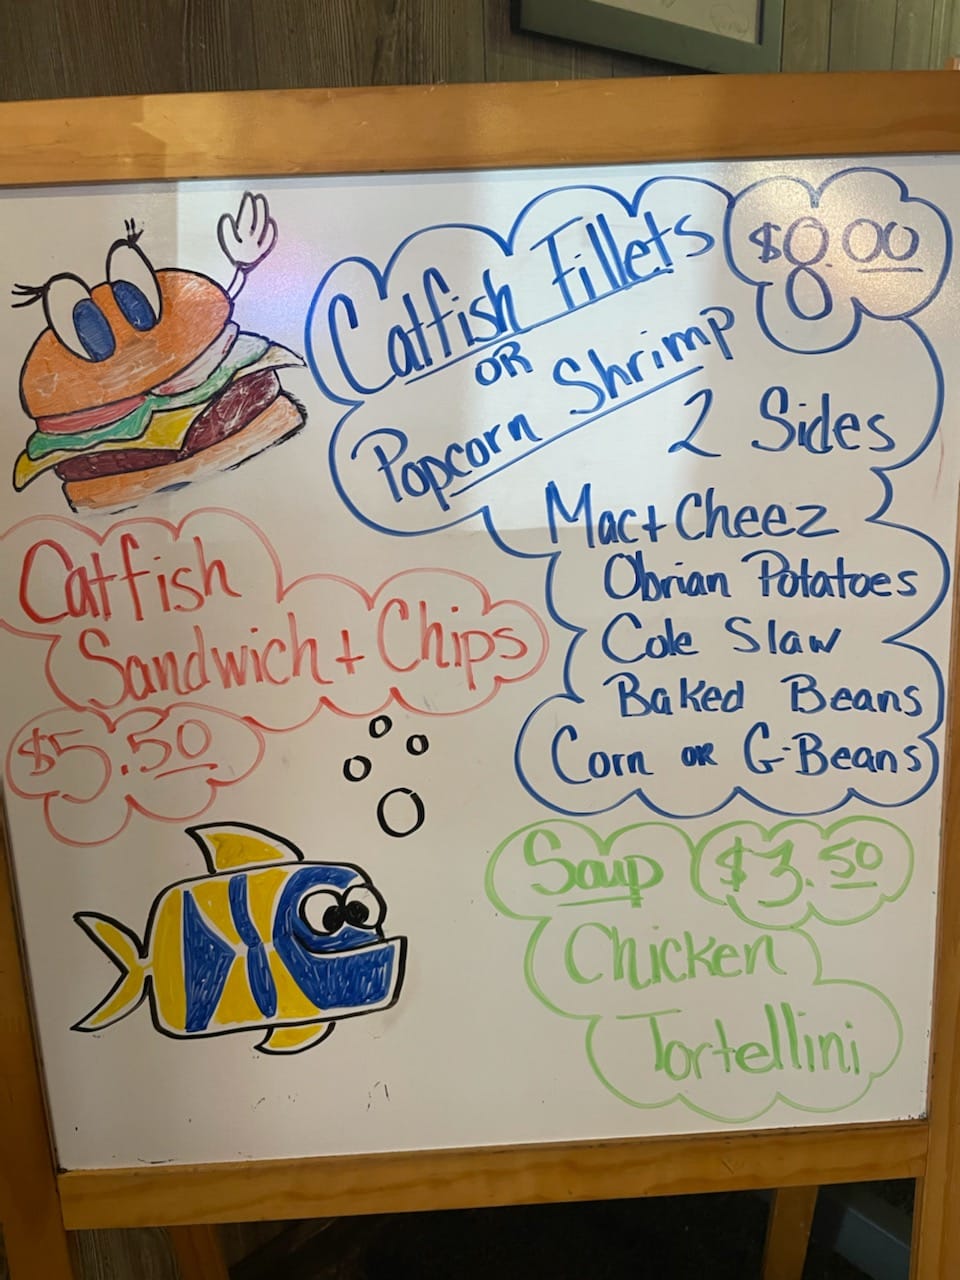 Catfish Fillets $8.00
OR
Popcorn Shrimp
2 Sides
Mac + Cheez
Obrian Potatoes
Cole Slaw
Baked Beans
Corn OR G-Beans
Catfish
Sandwich + Chips
$5.50
Soup $3.50
Chicken
Tortellini